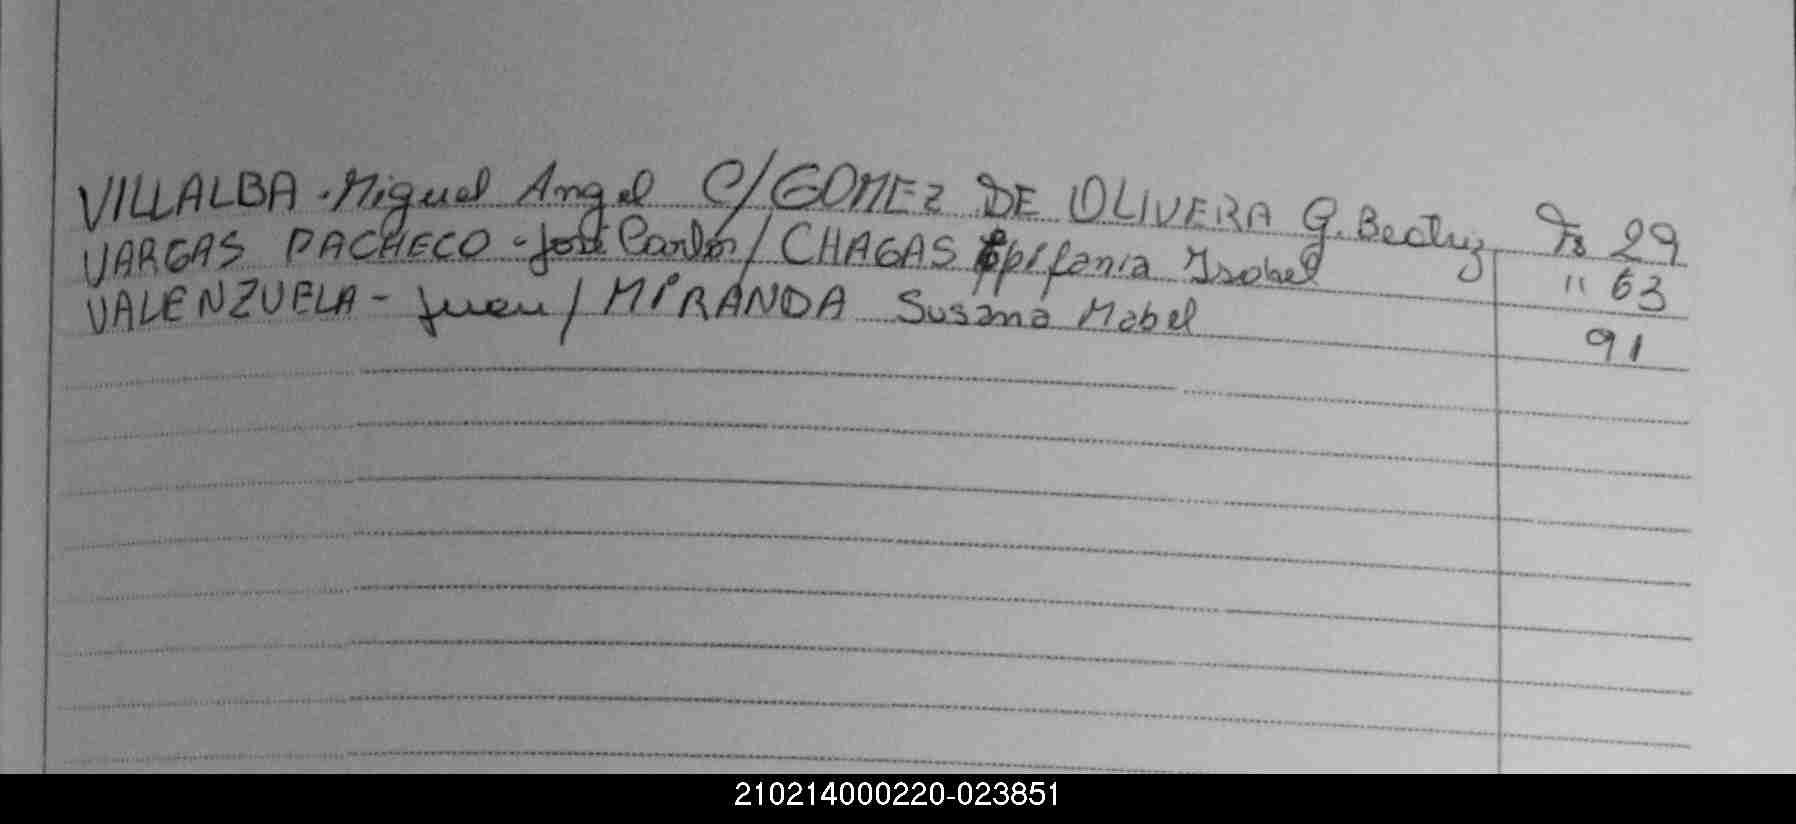 VILLALBA - Miguel Angel C/ GOMEZ DE OLIVERA G. Beatriz Fs 29
VARGAS PACHECO - José Carlos / CHAGAS Epifania Isabel " 63
VALENZUELA - Juan / MIRANDA Susana Mabel 91
210214000220-023851